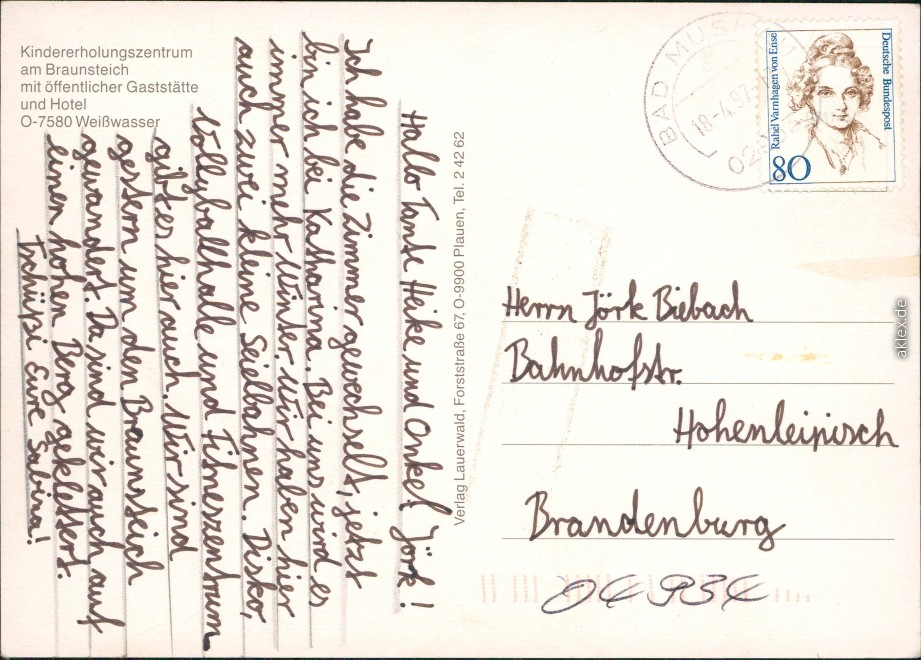 Kindererholungszentrum
am Braunsteich
mit öffentlicher Gaststätte
und Hotel
O-7580 Weißwasser
Hallo Tante Heike und Onkel Jörk!
Ich habe die Zimmer gewechselt, jetzt
bin ich bei Katharina. Bei uns wird es
immer mehr Munter. Wir haben hier
auch zwei kleine Seielbahnen. Disko,
Vollyballhalle und Fitneszentrum
gibt es hier auch. Wir sind
gestern um den Braunsteich
gewandert. Da sind wir auch auf
einen hohen Berg geklettert.
Tschüßi Eure Sabrina!
Verlag Lauerwald, Forststraße 67, O-9900 Plauen, Tel. 2 42 62
BAD MUSKAU
18-4.97
Rahel Varnhagen von Ense
Deutsche Bundespost
80
Herrn Jörk Biebach
Bahnhofstr.
Hohenleipisch
Brandenburg
04934
akpool.de